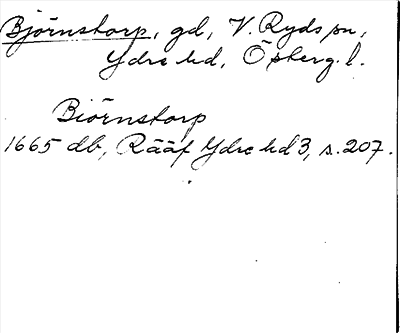 Björnstorp, gd, V. Ryds sn,
Ydre hd, Östergl.
Biörnstorp
1665 db, Rääf Ydre hd 3, s. 207.